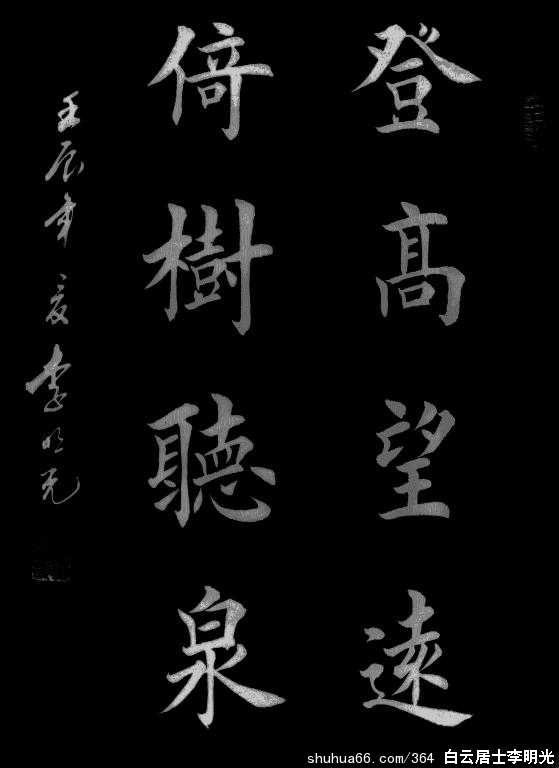 登高望遠
倚樹聽泉
壬辰年夏李明光
shuhua66.com/364 白云居士李明光